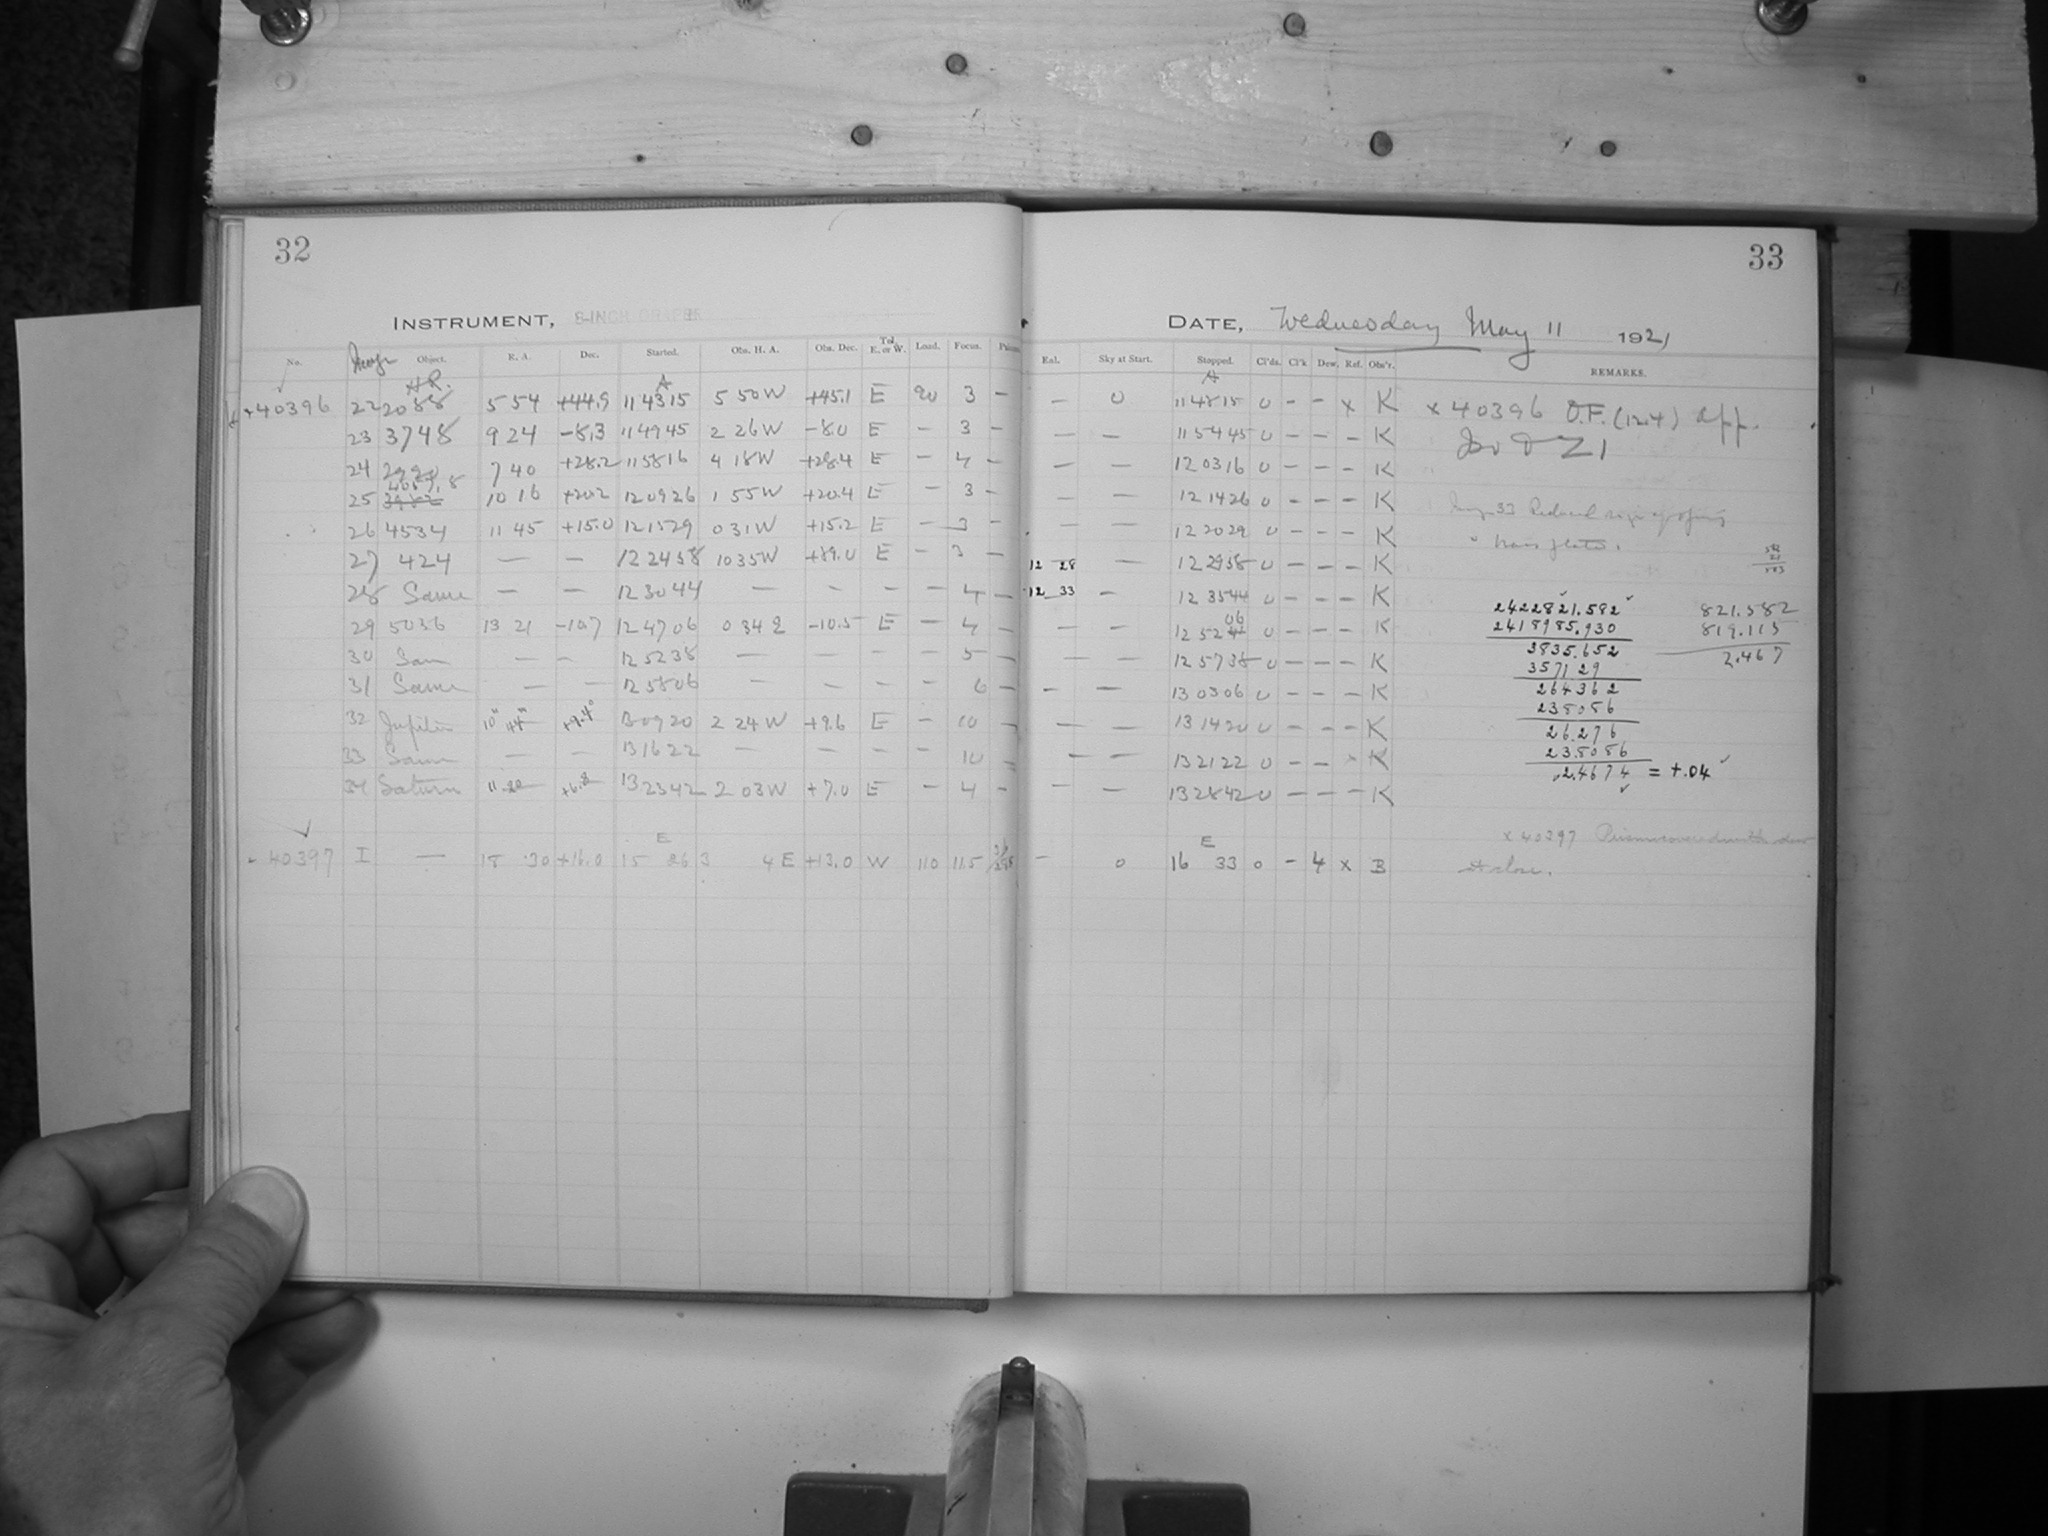 32
INSTRUMENT, 8-INCH DRAPER
No. Image Object. R. A. Dec. Started. Obs. H. A. Obs. Dec. Tel. E. or W. Load. Focus.
H.R. A
40396 22 2088 5 54 +44.9 11 43 15 5 50 W +45.1 E 90 3 –
23 3748 9 24 –8.3 11 49 45 2 26 W –8.0 E – 3 –
24 2990 7 40 +28.2 11 58 16 4 18 W +28.4 E – 4 –
4057,8
25 10 16 +20.2 12 09 26 1 55 W +20.4 E – 3 –
26 4534 11 45 +15.0 12 15 29 0 31 W +15.2 E – 3 –
27 424 – – 12 24 58 10 35 W +89.0 E – 3 –
28 Same – – 12 30 44 – – – – 4 –
29 5056 13 21 –10.7 12 47 06 0 34 E –10.5 E – 4 –
30 Sam – – 12 52 38 – – – – 5 –
31 Same – – 12 58 06 – – – – 6 –
32 Jupiter +9.4° 13 09 20 2 24 W +9.6 E – 10 –
33 Same – – 13 16 22 – – – – 10 –
34 Saturn +6.8 13 23 42 2 03 W +7.0 E – 4 –
E
40397 I – 18 30 +16.0 15 26 3 4 E +13.0 W 110 11.5
33
DATE, Wednesday May 11 1921
Rat. Sky at Start. Stopped. Cl'ds. Cl'k Dew, Ref. Obs'r. REMARKS.
A
– 0 11 48 15 0 – – x K x 40396 O.F. (12.4) App.
– – 11 54 45 0 – – – K
– – 12 03 16 0 – – – K
– – 12 14 26 0 – – – K
– – 12 20 29 0 – – – K
12 28 – 12 29 58 0 – – – K
12 33 – 12 35 44 0 – – – K
– – 12 52 06 0 – – – K
– – 12 57 38 0 – – – K
– – 13 03 06 0 – – – K
– – 13 14 20 0 – – – K
– – 13 21 22 0 – – x K
– – 13 28 42 0 – – – K
2422821.582 821.582
2418985.930 819.115
3835.652 2.467
357129
264362
235056
26.276
235056
.2.4674 = +.04
E
– 0 16 33 0 – 4 x B
x 40397 Prism covered with dew
at close.